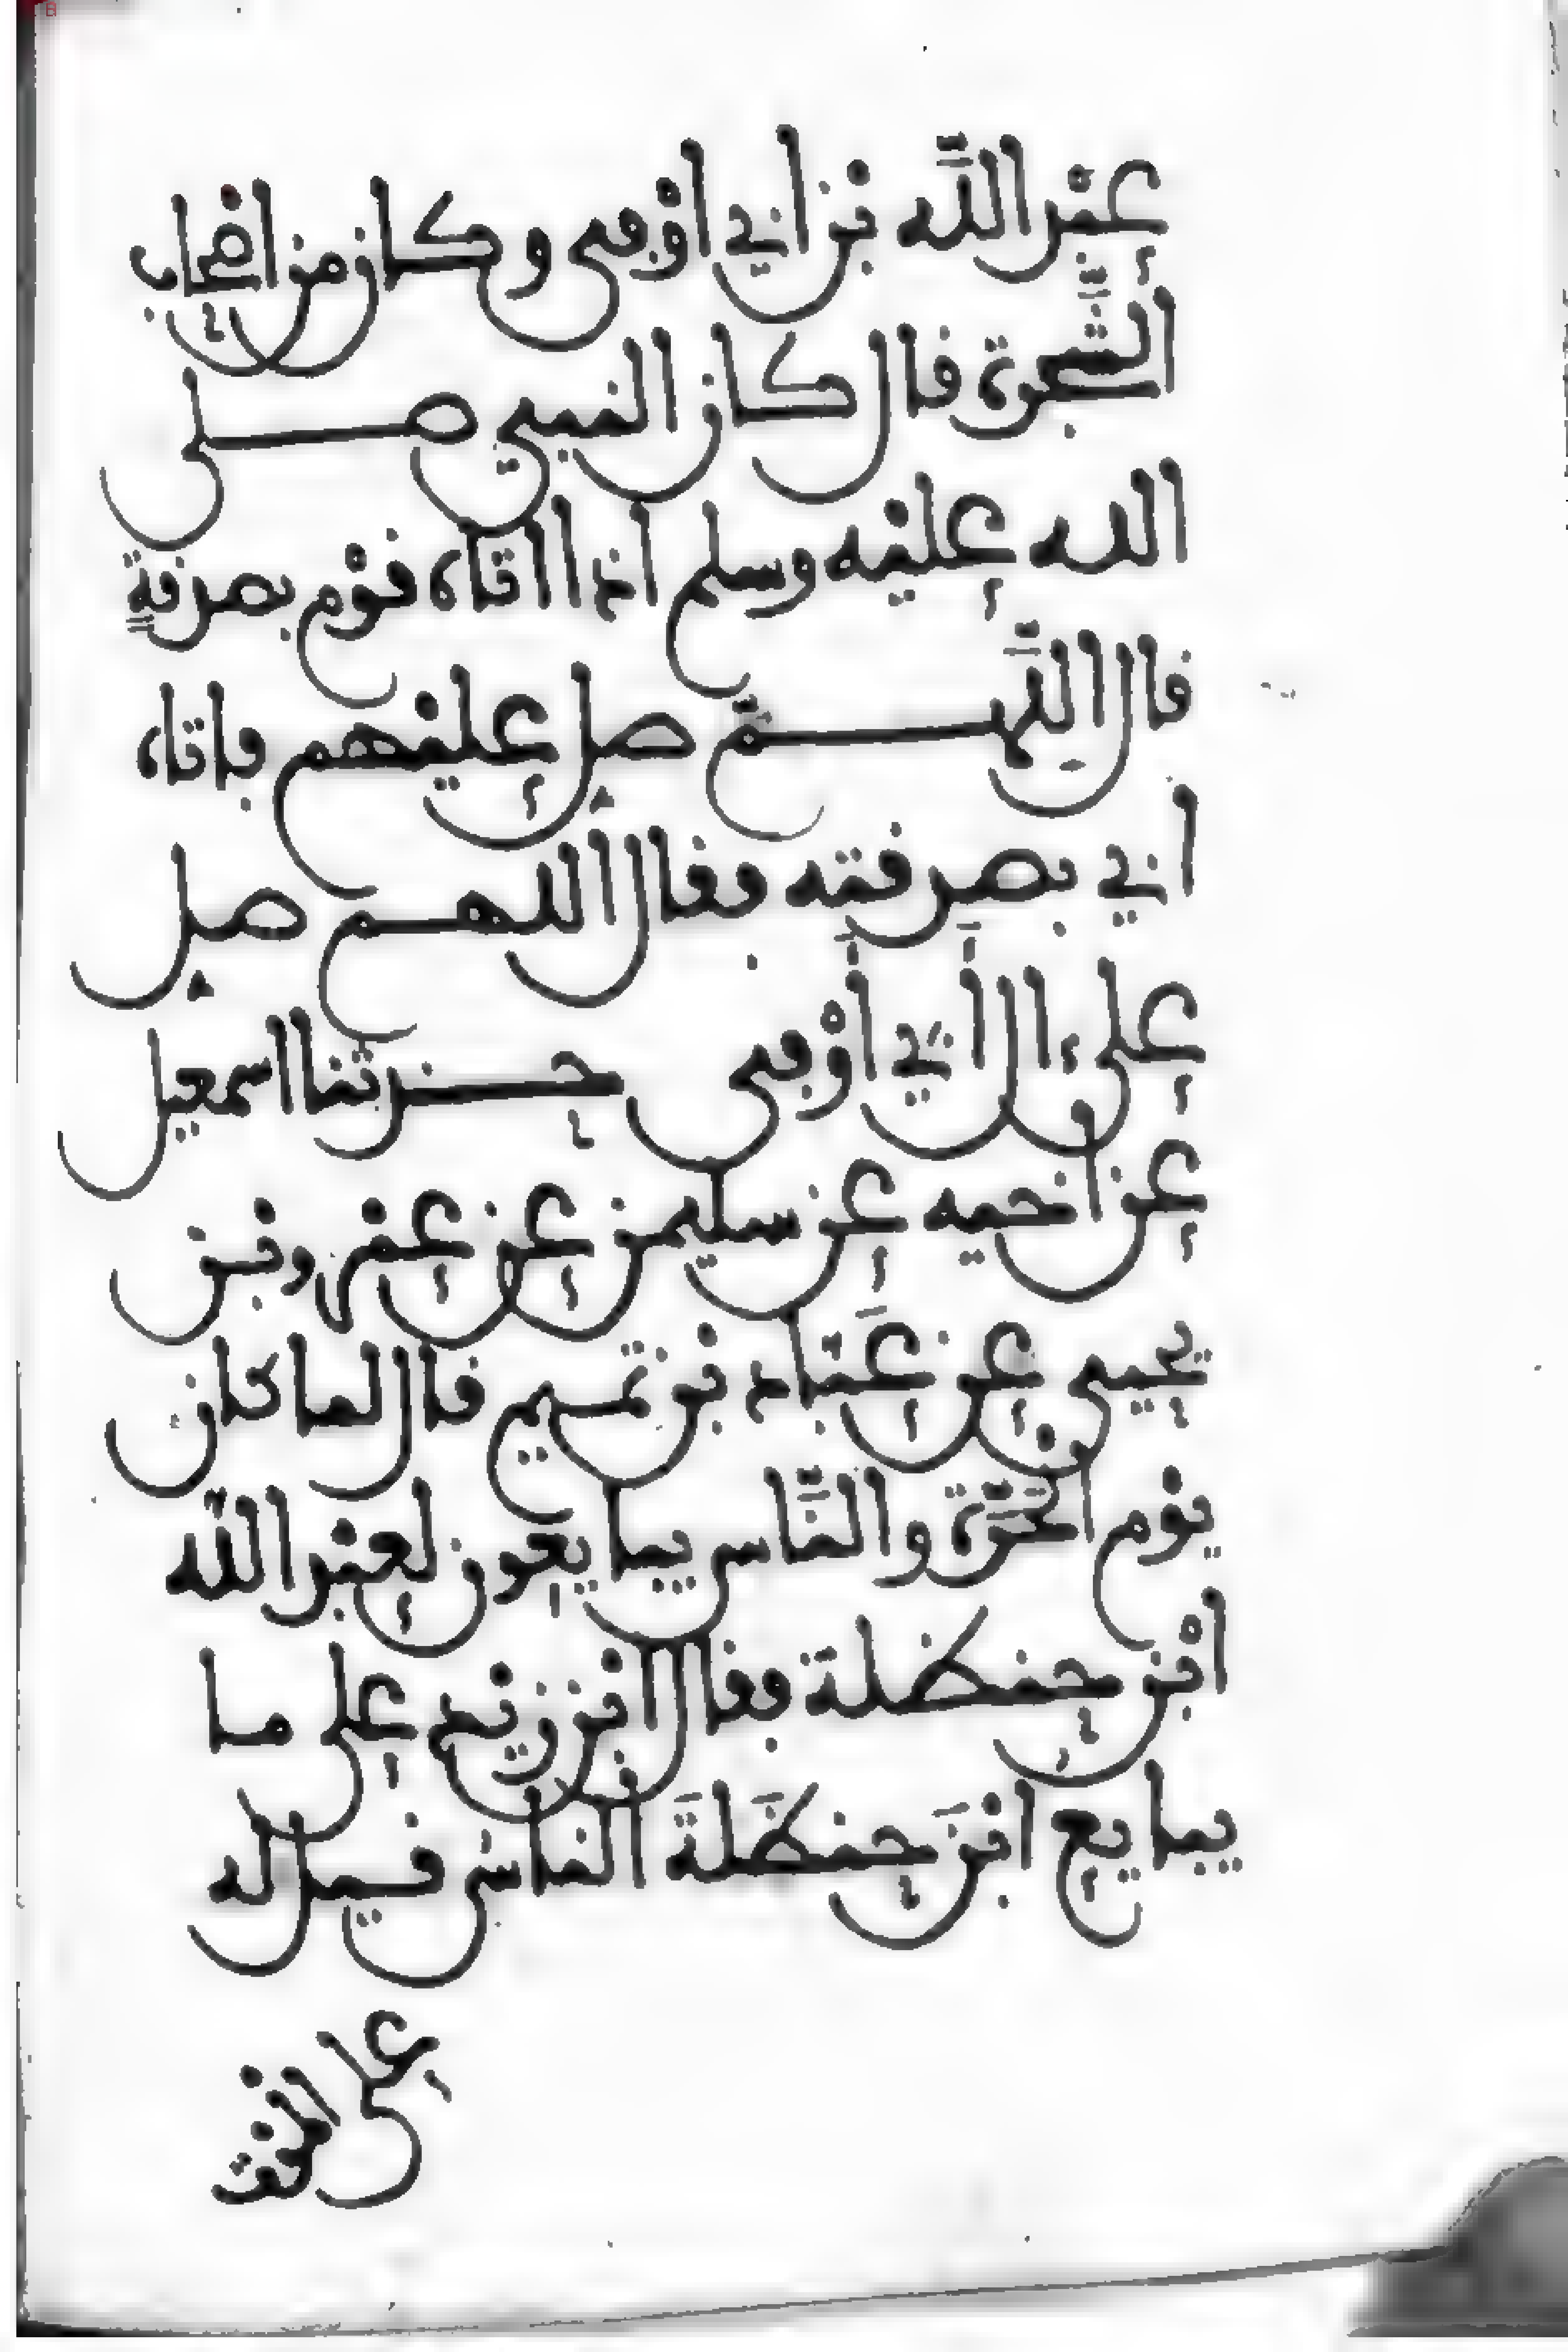 عبْد اللَّه بْن ابي اوْفى وكان من اصْحاب
الشَّجرة قال كان النبي صلى
الله عليْه وسلم اذا اتاه قوْم بصدقةٍ
قال اللَّهمَّ صل عليْهم فاتاه
ابي بصدقته فقال اللهم صل
على ءال أَبي أَوْفى حدثنا اسمعيل
عن اخيه عن سليمن عن عمْرو بْن
يحيى عن عَبَّاد بْن تميم قال لما كان
يوْم الْحَرَّة والنَّاس يبايعون لعبْد اللَّه
ابْن حنظلة فقال ابْن زيْد على ما
يبايع ابْنَ حنظَلةَ النَّاسُ قيل له
على الْموْت